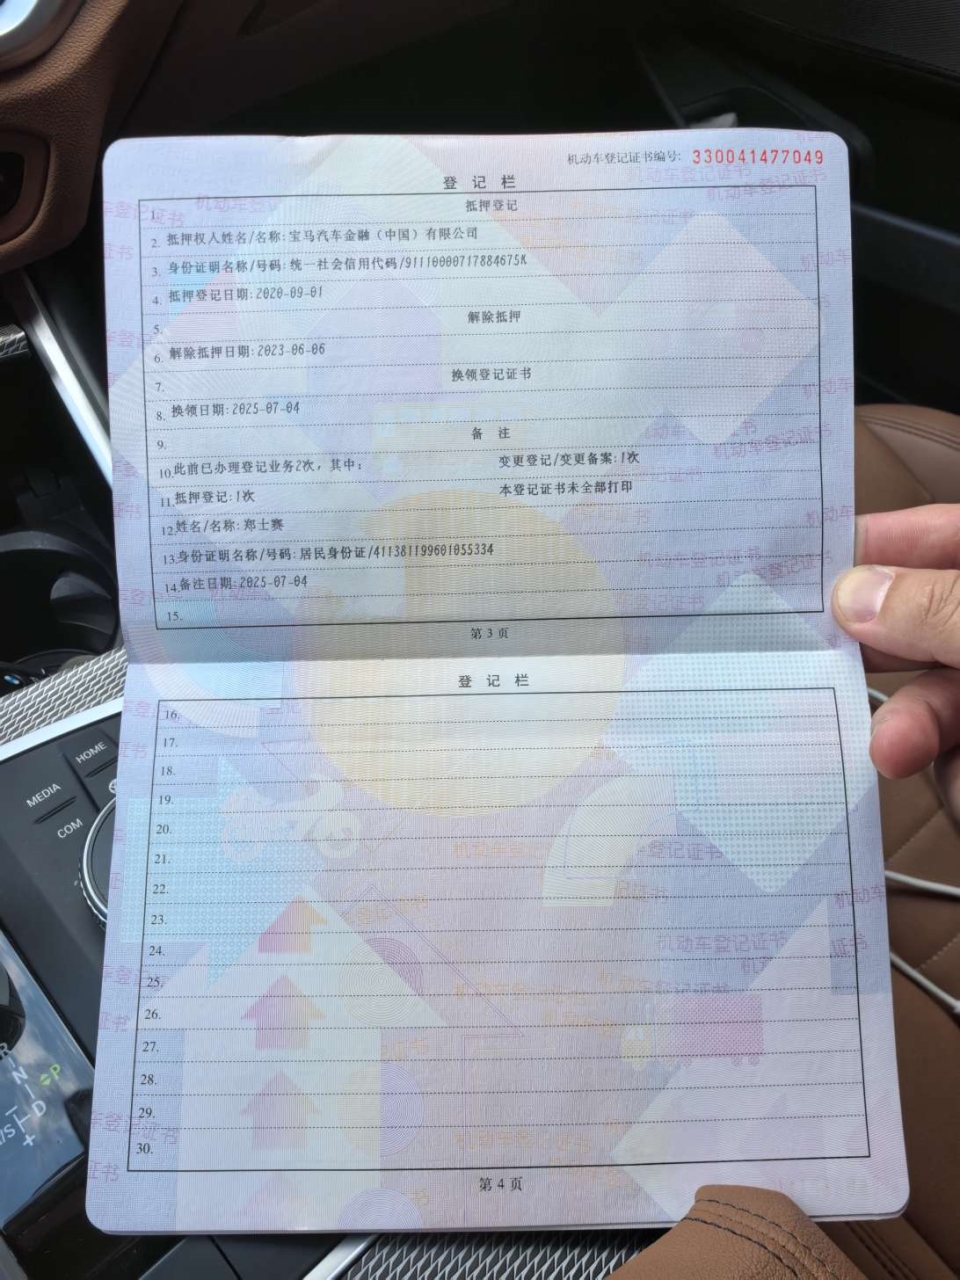 机动车登记证书编号: 330041477049
登 记 栏
1. 抵押登记
2. 抵押权人姓名/名称:宝马汽车金融（中国）有限公司
3. 身份证明名称/号码:统一社会信用代码/91110000717884675K
4. 抵押登记日期:2020-09-01
5. 解除抵押
6. 解除抵押日期:2023-06-06
7. 换领登记证书
8. 换领日期:2025-07-04
9. 备 注
10. 此前已办理登记业务2次，其中: 变更登记/变更备案:1次
11. 抵押登记:1次 本登记证书未全部打印
12. 姓名/名称:郑士赛
13. 身份证明名称/号码:居民身份证/411381199601055334
14. 备注日期:2025-07-04
15.
第 3 页
登 记 栏
16.
17.
18.
19.
20.
21.
22.
23.
24.
25.
26.
27.
28.
29.
30.
第 4 页
HOME
MEDIA
COM
R
N
P
D